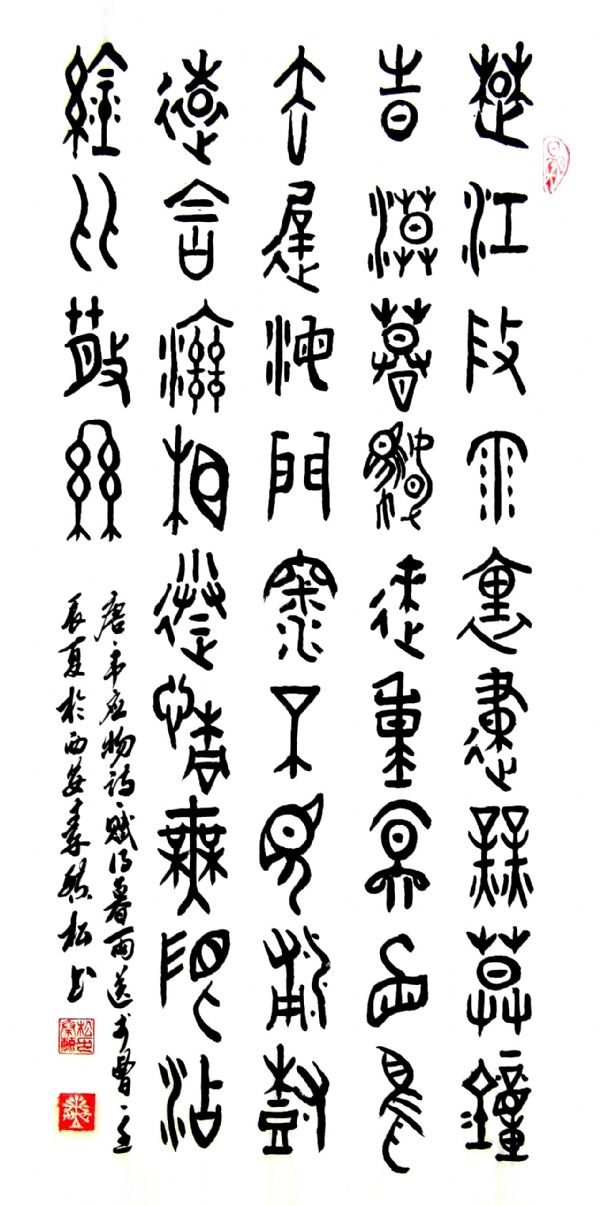 楚江微雨里建業暮鐘
時漠漠帆來重冥冥鳥
去遲海門深不見浦樹
遠含滋相送情無限沾
襟比散絲
唐·韦应物诗、赋得暮雨送李曹、壬
辰夏於西安秦松书